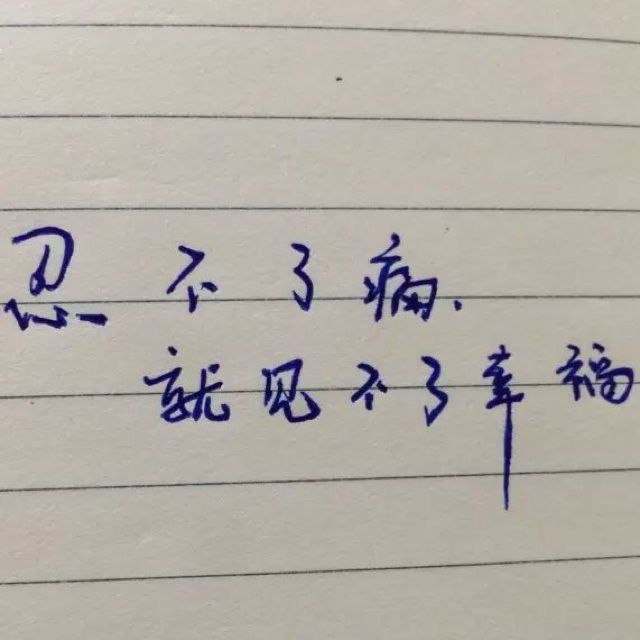 忍不了痛.
就见不了幸福